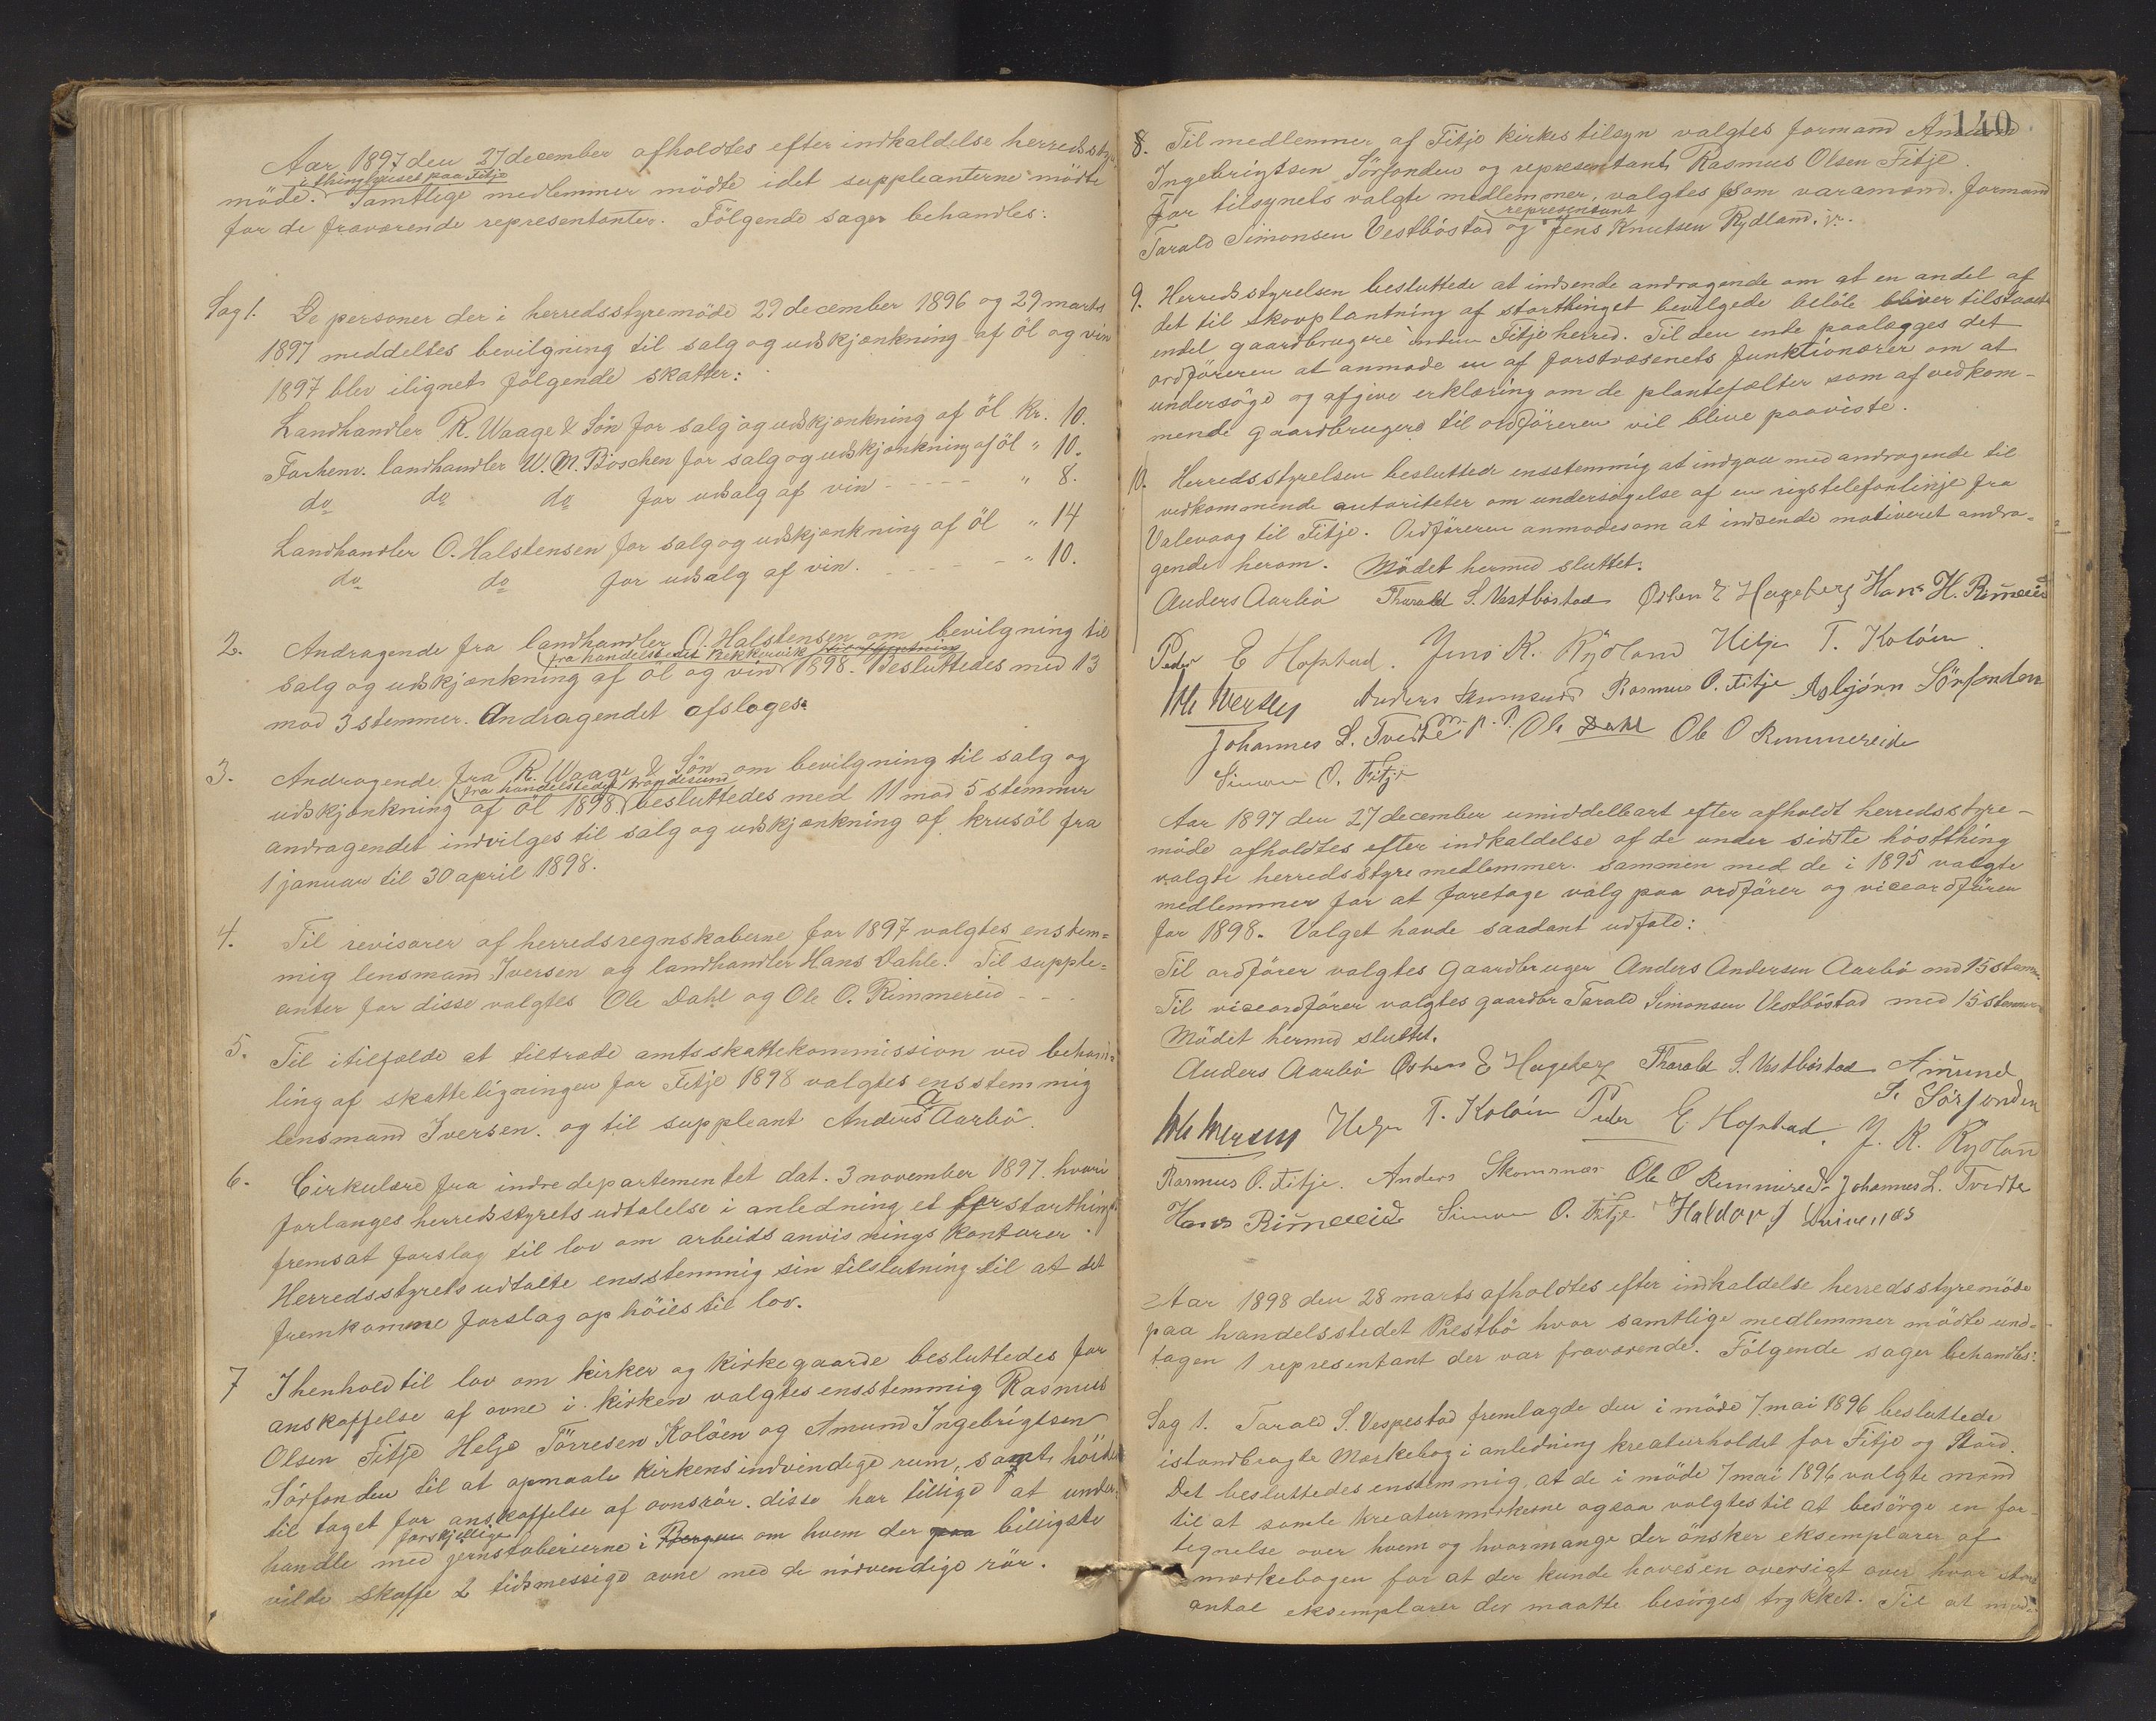 Aar 1897 den 27 december afholdtes efter indkaldelse herredsstyre
i thinghuset paa Fitje
möde. Samtlige medlemmer mödte idet suppleanterne mödte
for de fraværende representanter. Fölgende sager behandles:
Sag 1. De personer der i herredsstyremöde 29 december 1896 og 29 marts
1897 meddeltes bevilgning til salg og udskjænkning af öl og vin
1897 blev ilignet fölgende skatter:
Landhandler R. Waage & Sön for salg og udskjænkning af öl Kr. 10.
Forhenv. landhandler W. M. Böschen for salg og udskjænkning af öl " 10.
do do do for udsalg af vin - - - - - " 8.
Landhandler O. Halstensen for salg og udskjænkning af öl " 14
do do for udsalg af vin. - - - - - " 10.
2. Andragende fra landhandler O. Halstensen om bevilgning til
fra handelsstedet Rekkervik
salg og udskjænkning af öl og vin 1898. Besluttedes med 13
mod 3 stemmer. Andragendet afslages.
3. Andragende fra R. Waage & Sön om bevilgning til salg og
fra handelstedet Trondesund
udskjænkning af öl 1898 besluttedes med 11 mod 5 stemmer
andragendet indvilges til salg og udskjænkning af krusöl fra
1 januar til 30 april 1898.
4. Til revisorer af herredsregnskaberne for 1897 valgtes enstem=
mig lensmand Iversen og landhandler Hans Dahle. Til supple=
anter for disse valgtes Ole Dahl og Ole O. Rimmereid - - .
5. Til itilfælde at tiltræde amtsskattekommission ved behand=
ling af skatteligningen for Fitje 1898 valgtes ensstemmig
lensmand Iversen. og til suppleant Anders A Aarbö.
6. Cirkulære fra indredepartementet dat. 3 november 1897. hvori
forlanges herredsstyrets udtalelse i anledning et for storthinget
fremsat forslag til lov om arbeidsanvisningskontorer.
Herredsstyrets udtalte ensstemmig sin tilslutning til at det
fremkomme forslag ophöies til lov.
7 I henhold til lov om kirker og kirkegaarde besluttedes for
anskaffelse af ovne i kirken valgtes ensstemmig Rasmus
Olsen Fitje Helje Törresen Kolöen og Amund Ingebrigtsen
Sörfonden til at opmaale kirkens indvindige rum, samt höiden
til taget for anskaffelse af ovnsrör. disse har tillige at under=
forskjellige
handle med jernstöberierne i Bergen om hvem der paa billigste
vilde skaffe 2 tidsmessige ovne med de nödvendige rör.
140
8. Til medlemmer af Fitje kirkes tilsyn valgtes formand Amund
Ingebrigtsen Sörfonden og representant Rasmus Olsen Fitje.
For tilsynets valgte medlemmer, valgtes som varamænd. formand
representant
Tarald Simonsen Vestböstad og Jens Knutsen Rydland. jr.
9. Herredsstyrelsen besluttede at indsende andragende om at en andel af
det til skovplantning af storthinget bevilgede belöb bliver tilstaaet
endel gaardbrugere inden Fitje herred. Til den ende paalægges det
ordföreren at anmode en af forstvæsenets funktionærer om at
undersöge og afgive erklæring om de plantefælter som af vedkom-
mende gaardbrugere til ordföreren vil blive paaviste.
10. Herredsstyrelsen besluttede ensstemmig at indgaa med andragende til
vedkommende autoriteter om undersögelse af en rigstelefonlinje fra
Valevaag til Fitje. Ordföreren anmodes om at indsende motiveret andra=
gende herom. Mödet hermed sluttet.
Anders Aarbö Tharald S. Vestböstad Östen E Hageberg Hans H. Rimereid
Peder E Hofstad. Jens K. Rydland Helje T. Kolöen
Anders Skumsnes Rasmus O. Fitje Asbjörn Sörfonden
Johannes L. Tveite m. p. P. Ole Dahl Ole O Rimmereide
Simon O. Fitje
Aar 1897 den 27 december umiddelbart efter afholdt herredsstyre-
möde afholdtes efter indkaldelse af de under sidste höstthing
valgte herredsstyremedlemmer. sammen med de i 1895 valgte
medlemmer for at foretage valg paa ordförer og viceordförer
for 1898. Valget havde saadant udfald:
Til ordförer valgtes gaardbruger Anders Andersen Aarbö med 15 stemmer.
Til viceordförer valgtes gaardbr Tarald Simonsen Vestböstad med 15 stemmer
Mödet hermed sluttet.
Anders Aarbö Östen E Hageberg Tharald S. Vestböstad Amund
S. Sörfonden
Helje T. Kolöen Peder E. Hofstad. J. K. Rydland
Rasmus O. Fitje. Anders Skomsnes Ole O Rimmereide Johannes L. Tveite
Hans Rimereid Simon O. Fitje Haldor J
Aar 1898 den 28 marts afholdtes efter indkaldelse herredsstyremöde
paa handelsstedet Prestbö hvor samtlige medlemmer mödte und=
tagen 1 representant der var fraværende. Fölgende sager behandles:
Sag 1. Tarald S. Vespestad fremlagde den i möde 7. mai 1896 besluttede
istandbragte Mærkebog i anledning kreaturholdet for Fitje og Stord.
Det besluttedes enstemmig, at de i möde 7 mai 1896 valgte mænd
til at samle kreaturmærkerne ogsaa valgtes til at besörge en for-
tegnelse over hvem og hvormange der önsker eksemplarer af
mærkebogen for at der kunde haves en oversigt over hvor stort
antal eksemplarer der maatte besörges trykket. Til at